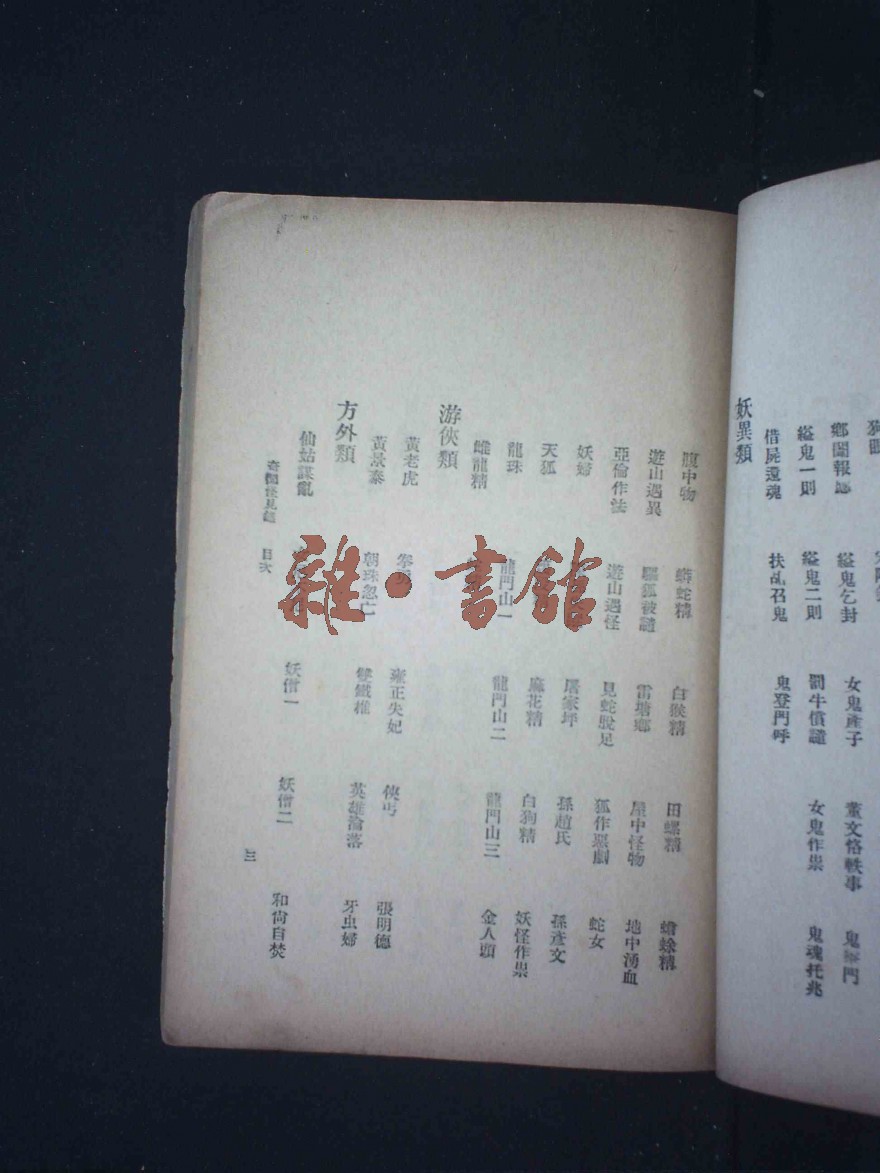 鄉闈報
縊鬼乞封
女鬼產子
董文恪軼事
縊鬼一則
縊鬼二則
罰牛償譴
女鬼作祟
鬼魂托兆
借屍還魂
扶乩召鬼
鬼登門呼
妖異類
腹中物
蟒蛇精
白猴精
田螺精
蟾蜍精
遊山遇異
驅狐被譴
雷塘鄉
屋中怪物
地中湧血
亞倫作法
遊山遇怪
見蛇脫足
狐作惡劇
蛇女
妖婦
屠家坪
孫趙氏
孫彥文
天狐
麻花精
白狗精
妖怪作祟
龍珠
龍門山一
龍門山二
龍門山三
金人頭
雌龍精
游俠類
黃老虎
雍正失妃
俠丐
張明德
黃景泰
朝珠忽亡
雙鐵椎
英雄淪落
牙虫婦
方外類
仙姑謀亂
妖僧一
妖僧二
和尙自焚
奇聞怪見錄 目次
三
雜·書館